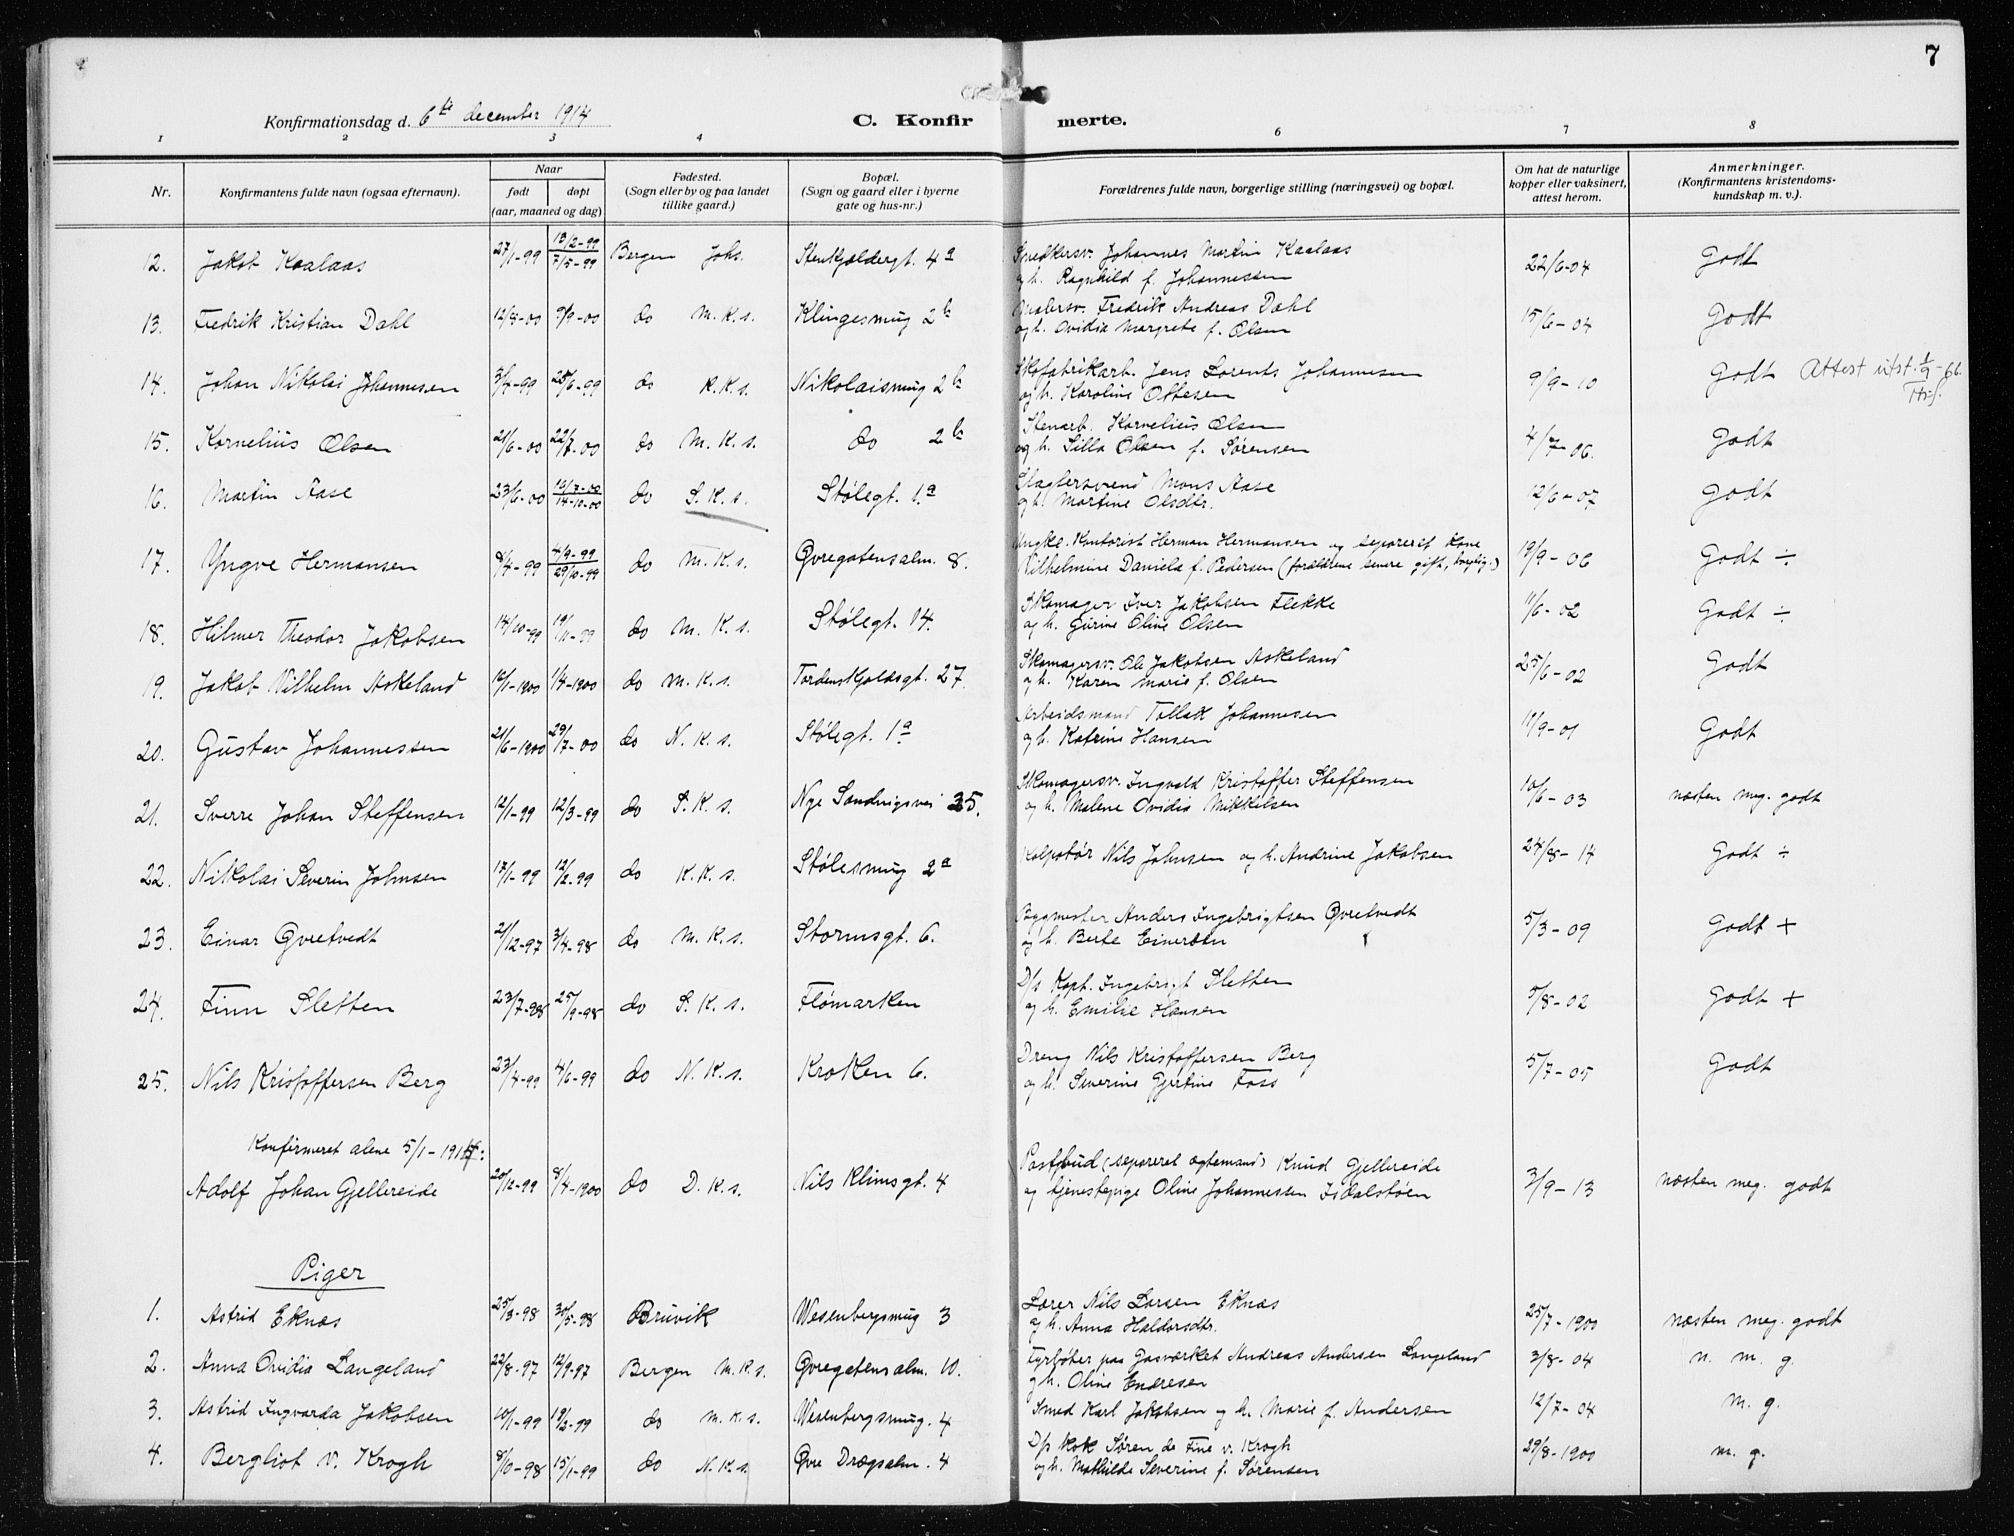 7
Konfirmationsdag d. 6te december 1914
C. Konfirmerte.
1 2 3 4 6 7 8
Nr.
Konfirmantens fulde navn (ogsaa efternavn).
Naar
født døpt
(aar, maaned og dag)
Fødested.
(Sogn eller by og paa landet
tillike gaard.)
Bopæl.
(Sogn og gaard eller i byerne
gate og hus-nr.)
Forældrenes fulde navn, borgerlige stilling (næringsvei) og bopæl.
Om hat de naturlige
kopper eller vaksinert,
attest herom.
Anmerkninger.
(Konfirmantens kristendoms-
kundskap m. v.).
12. Jakob Kaalaas 27/1-99 13/2-99 7/5-99 Bergen Johs. Stenkjeldergt. 4a Snedkersv. Johannes Martin Kaalaas 22/6-04 Godt
og h. Ragnhild f. Johannessen
13. Fredrik Kristian Dahl 12/8-00 9/9-00 do M.K.s. Klingesmug 2b Malersv. Fredrik Andreas Dahl 15/6-04 Godt
og h. Ovidia Margrete f. Olsen
14. Johan Nikolai Johannesen 3/4-99 25/6-99 do K.K.s. Nikolaismug 2b Skofabrikarb. Jens Lorents Johannesen 9/9-10 Godt Attest utst. 1/9-66.
og h. Karoline Ottesen
15. Kornelius Olsen 21/6-00 22/7-00 do M.K.s. do 2b Stenarb. Kornelius Olsen 4/7-06. Godt
og h. Silla Olsen f. Sørensen
16. Martin Aase 23/6-00 16/7-00 14-10-00 do S.K.s. Stølegt. 1.a Slagtersvend Mons Aase 12/6-07 Godt
og h. Martine Olsdtr.
17. Yngve Hermansen 8/4-99 4/9-99 29/10-99 do M.K.s. Øvregatensalm. 8. Ungkl. Kontorist Herman Hermansen og separeret kone 19/9-06 Godt ÷
Vilhelmine Daniela f. Pedersen (forældrene senere gift,
18. Hilmer Theodor Jakobsen 14/10-99 19/11-99 do M.K.s. Stølegt. 14. Skomager Iver Jakobsen Flekke 11/6-02 Godt ÷
og h. Gurine Oline Olsen
19. Jakob Vilhelm Askeland 12/1-1900 1/4-1900 do M.K.s. Tordenskjoldsgt. 27. Skomagersv. Ole Jakobsen Askeland 25/6-02 Godt
og h. Karen Marie f. Olsen
20. Gustav Johannessen 21/6-1900 29/7-00 do N.K.s. Stølegt. 1a Arbeidsmand Tollak Johannesen 11/9-01 Godt
og h. Katrine Hansen
21. Sverre Johan Steffensen 12/1-99 12/3-99 do S.K.s. Nye Sandvigsvei 35. Skomagersv. Ingvald Kristoffer Steffensen 10/6-03 næsten meg. godt
og h. Malene Ovidia Mikkelsen
22. Nikolai Severin Johnsen 17/1-99 12/2-99 do K.K.s. Stølesmug 2a Kolpotør Nils Johnsen og h. Andrine Jakobsen 24/8-14 Godt ÷
23. Einar Øvretvedt 21/12-97 3/4-98 do M.K.s. Stormsgt. 6. Bygmester Anders Ingebrigtsen Øvretvedt 5/3-09 Godt +
og h. Berte
24. Finn Sletten 23/7-98 25/9-98 do S.K.s. Flømarken D/s Kapt. Ingebrigt Sletten 5/8-02 Godt +
og h. Emilie Hansen
25. Nils Kristoffersen Berg 23/4-99 4/6-99 do N.K.s. Kroken 6. Dreng Nils Kristoffersen Berg 5/7-05 Godt
og h. Severine Gjertine Foss
Konfirmeret alene 5/1-1914:
Adolf Johan Gjellereide 20/12-99 8/4-1900 do D.K.s. Nils Klimsgt. 4 Postbud (separeret ægtemand) Knud Gjellereide 3/9-13 næsten meg. godt
og tjenestepige Oline Johannessen Isdalstøen
Piger
1. Astrid Eknæs 25/3-98 30/5-98 Bruvik Wesenbergsmug 3 Lærer Nils Larsen Eknæs 25/7-1900 næsten meg. godt
og h. Anna Haldorsdtr.
2. Anna Ovidia Langeland 22/8-97 12/9-97 Bergen M.K.s. Øvregatensalm. 10. Fyrbøter paa Gasværket Andreas Andersen Langeland 3/8-04 n. m. g.
og h. Oline Endresen
3. Astrid Ingvarda Jakobsen 10/1-99 19/2-99 do M.K.s. Wesenbergsmug. 4 Smed Karl Jakobsen og h. Marie f. Andersen 12/7-04 m. g.
4. Bergliot v. Krogh 8/10-98 15/1-99 do N.K.s. Øvre Drægsalm. 4 D/s kok Søren de Fine v. Krogh 29/8-1900 m. g.
og h. Mathilde Severine f. Sørensen